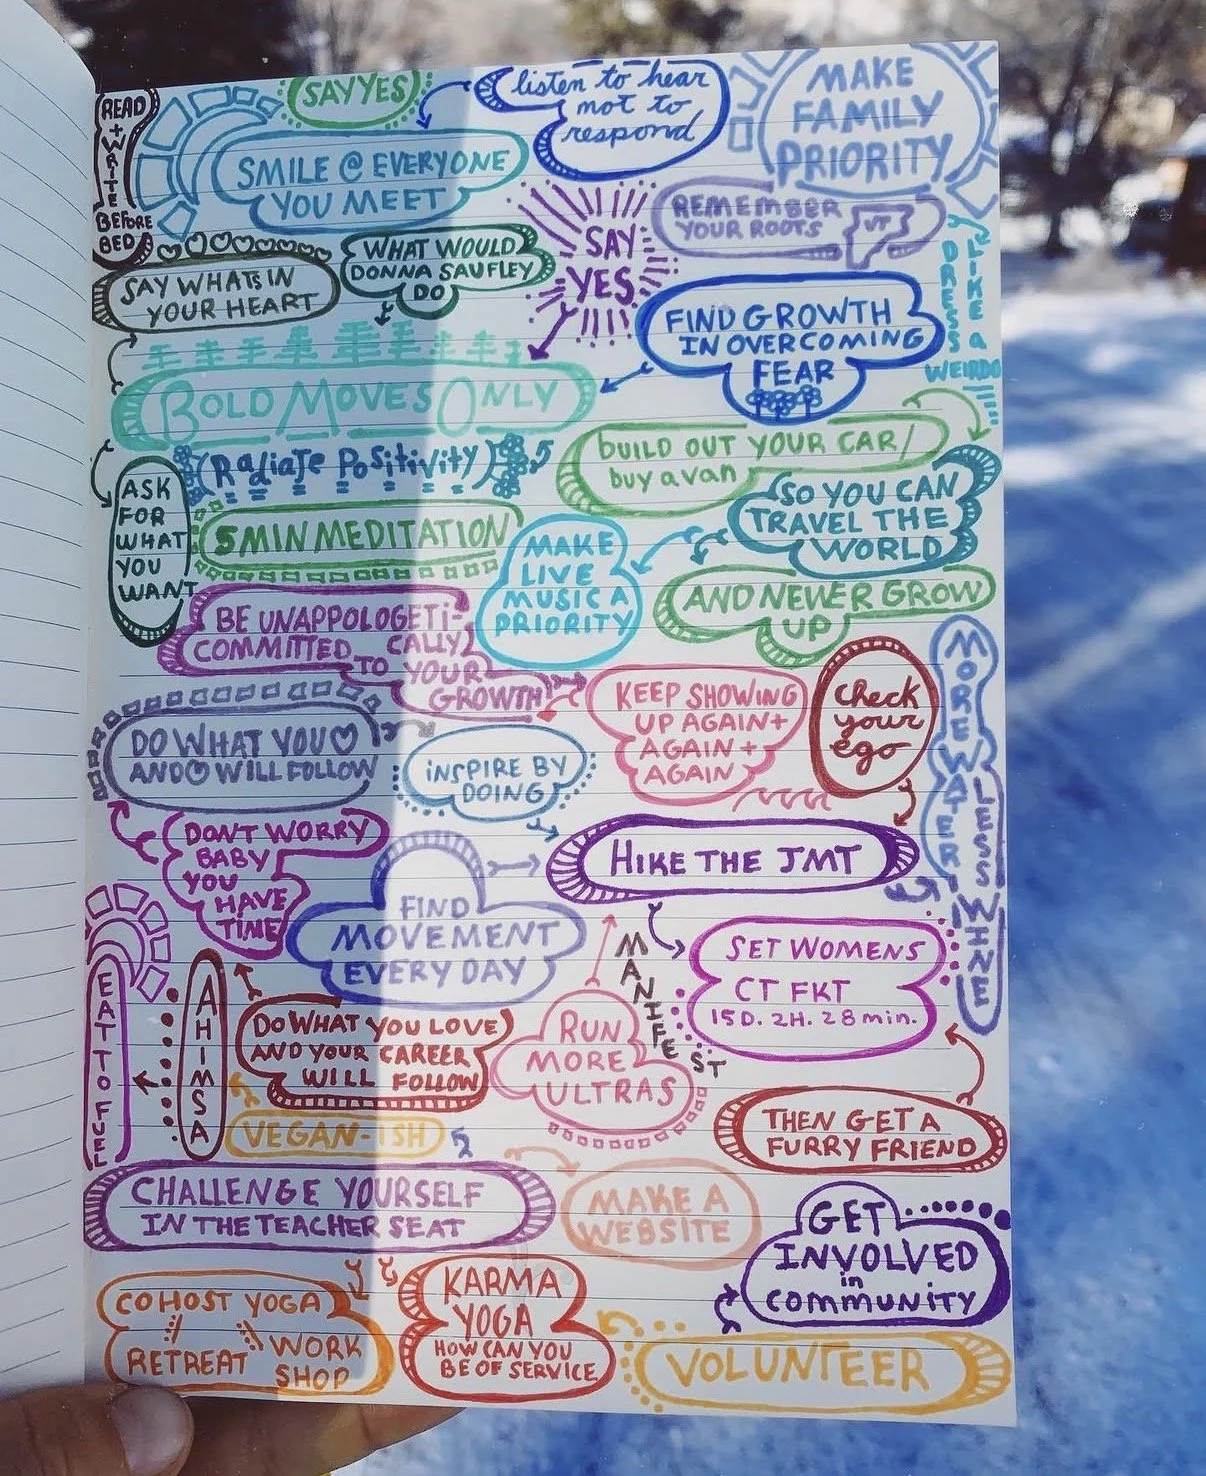 READ
+
WRITE
BEFORE
BED
SAY YES
listen to hear
not to
respond
MAKE
FAMILY
PRIORITY
SMILE @ EVERYONE
YOU MEET
SAY
YES
REMEMBER
YOUR ROOTS
VT
DRESS
LIKE A
WEIRDO
SAY WHATS IN
YOUR HEART
WHAT WOULD
DONNA SAUFLEY
DO
FIND GROWTH
IN OVERCOMING
FEAR
BOLD MOVES ONLY
(Radiate Positivity)
BUILD OUT YOUR CAR/
buy a van
SO YOU CAN
TRAVEL THE
WORLD
ASK
FOR
WHAT
YOU
WANT
5 MIN MEDITATION
MAKE
LIVE
MUSIC A
PRIORITY
AND NEVER GROW
UP
BE UNAPPOLOGETi-
CALLY
COMMITTED
TO YOUR
GROWTH
KEEP SHOWING
UP AGAIN +
AGAIN +
AGAIN
check
your
ego
MORE WATER
LESS WINE
DO WHAT YOU ♡
AND ♡ WILL FOLLOW
INSPIRE BY
DOING
DONT WORRY
BABY
YOU
HAVE
TIME
HIKE THE JMT
FIND
MOVEMENT
EVERY DAY
MANIFEST
SET WOMENS
CT FKT
15D. 2H. 28 min.
EAT TO FUEL
AHIMSA
DO WHAT YOU LOVE
AND YOUR CAREER
WILL FOLLOW
RUN
MORE
ULTRAS
THEN GET A
FURRY FRIEND
VEGAN-ISH
CHALLENGE YOURSELF
IN THE TEACHER SEAT
MAKE A
WEBSITE
GET
INVOLVED
in
COMMUNITY
COHOST YOGA
RETREAT
WORK
SHOP
KARMA
YOGA
HOW CAN YOU
BE OF SERVICE
VOLUNTEER